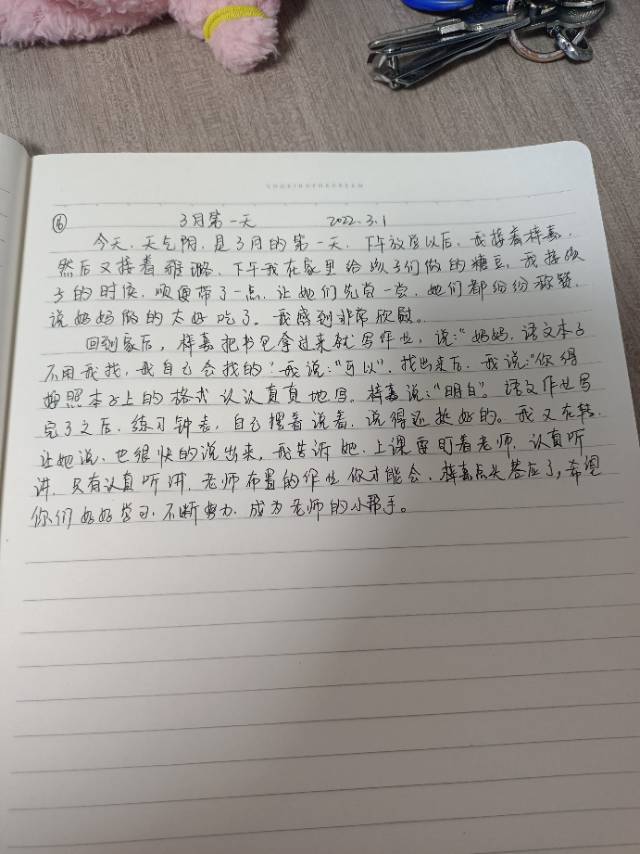 ⑥ 3月第一天 2022.3.1
今天,天气阴,是3月的第一天,下午放学以后,我接着梓嘉,
然后又接着雅璐,下午我在家里给孩子们做的糖豆,我接孩
子的时候,顺便带了一点,让她们先尝一尝,她们都纷纷称赞,
说妈妈做的太好吃了。我感到非常欣慰。
回到家后,梓嘉把书包拿过来就写作业,说:"妈妈,语文本子
不用我找,我自己会找的"我说:"可以",找出来后,我说:"你得
按照本子上的格式认认真真地写。梓嘉说:"明白"。语文作业写
完了之后,练习钟表,自己摆着说着,说得还挺好的。我又在转,
让她说,也很快的说出来,我告诉她,上课要盯着老师,认真听
讲,只有认真听讲,老师布置的作业你才能会,梓嘉点头答应了,希望
你们好好学习,不断努力,成为老师的小帮手。